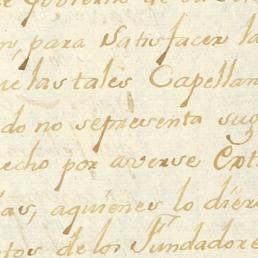 e Govierno de su
on, para satisfacer la
ue las tales Capellan
do no sepresenta sug
echo por averse Ext
ias, aquienes lo diër
tos de los Fundadore